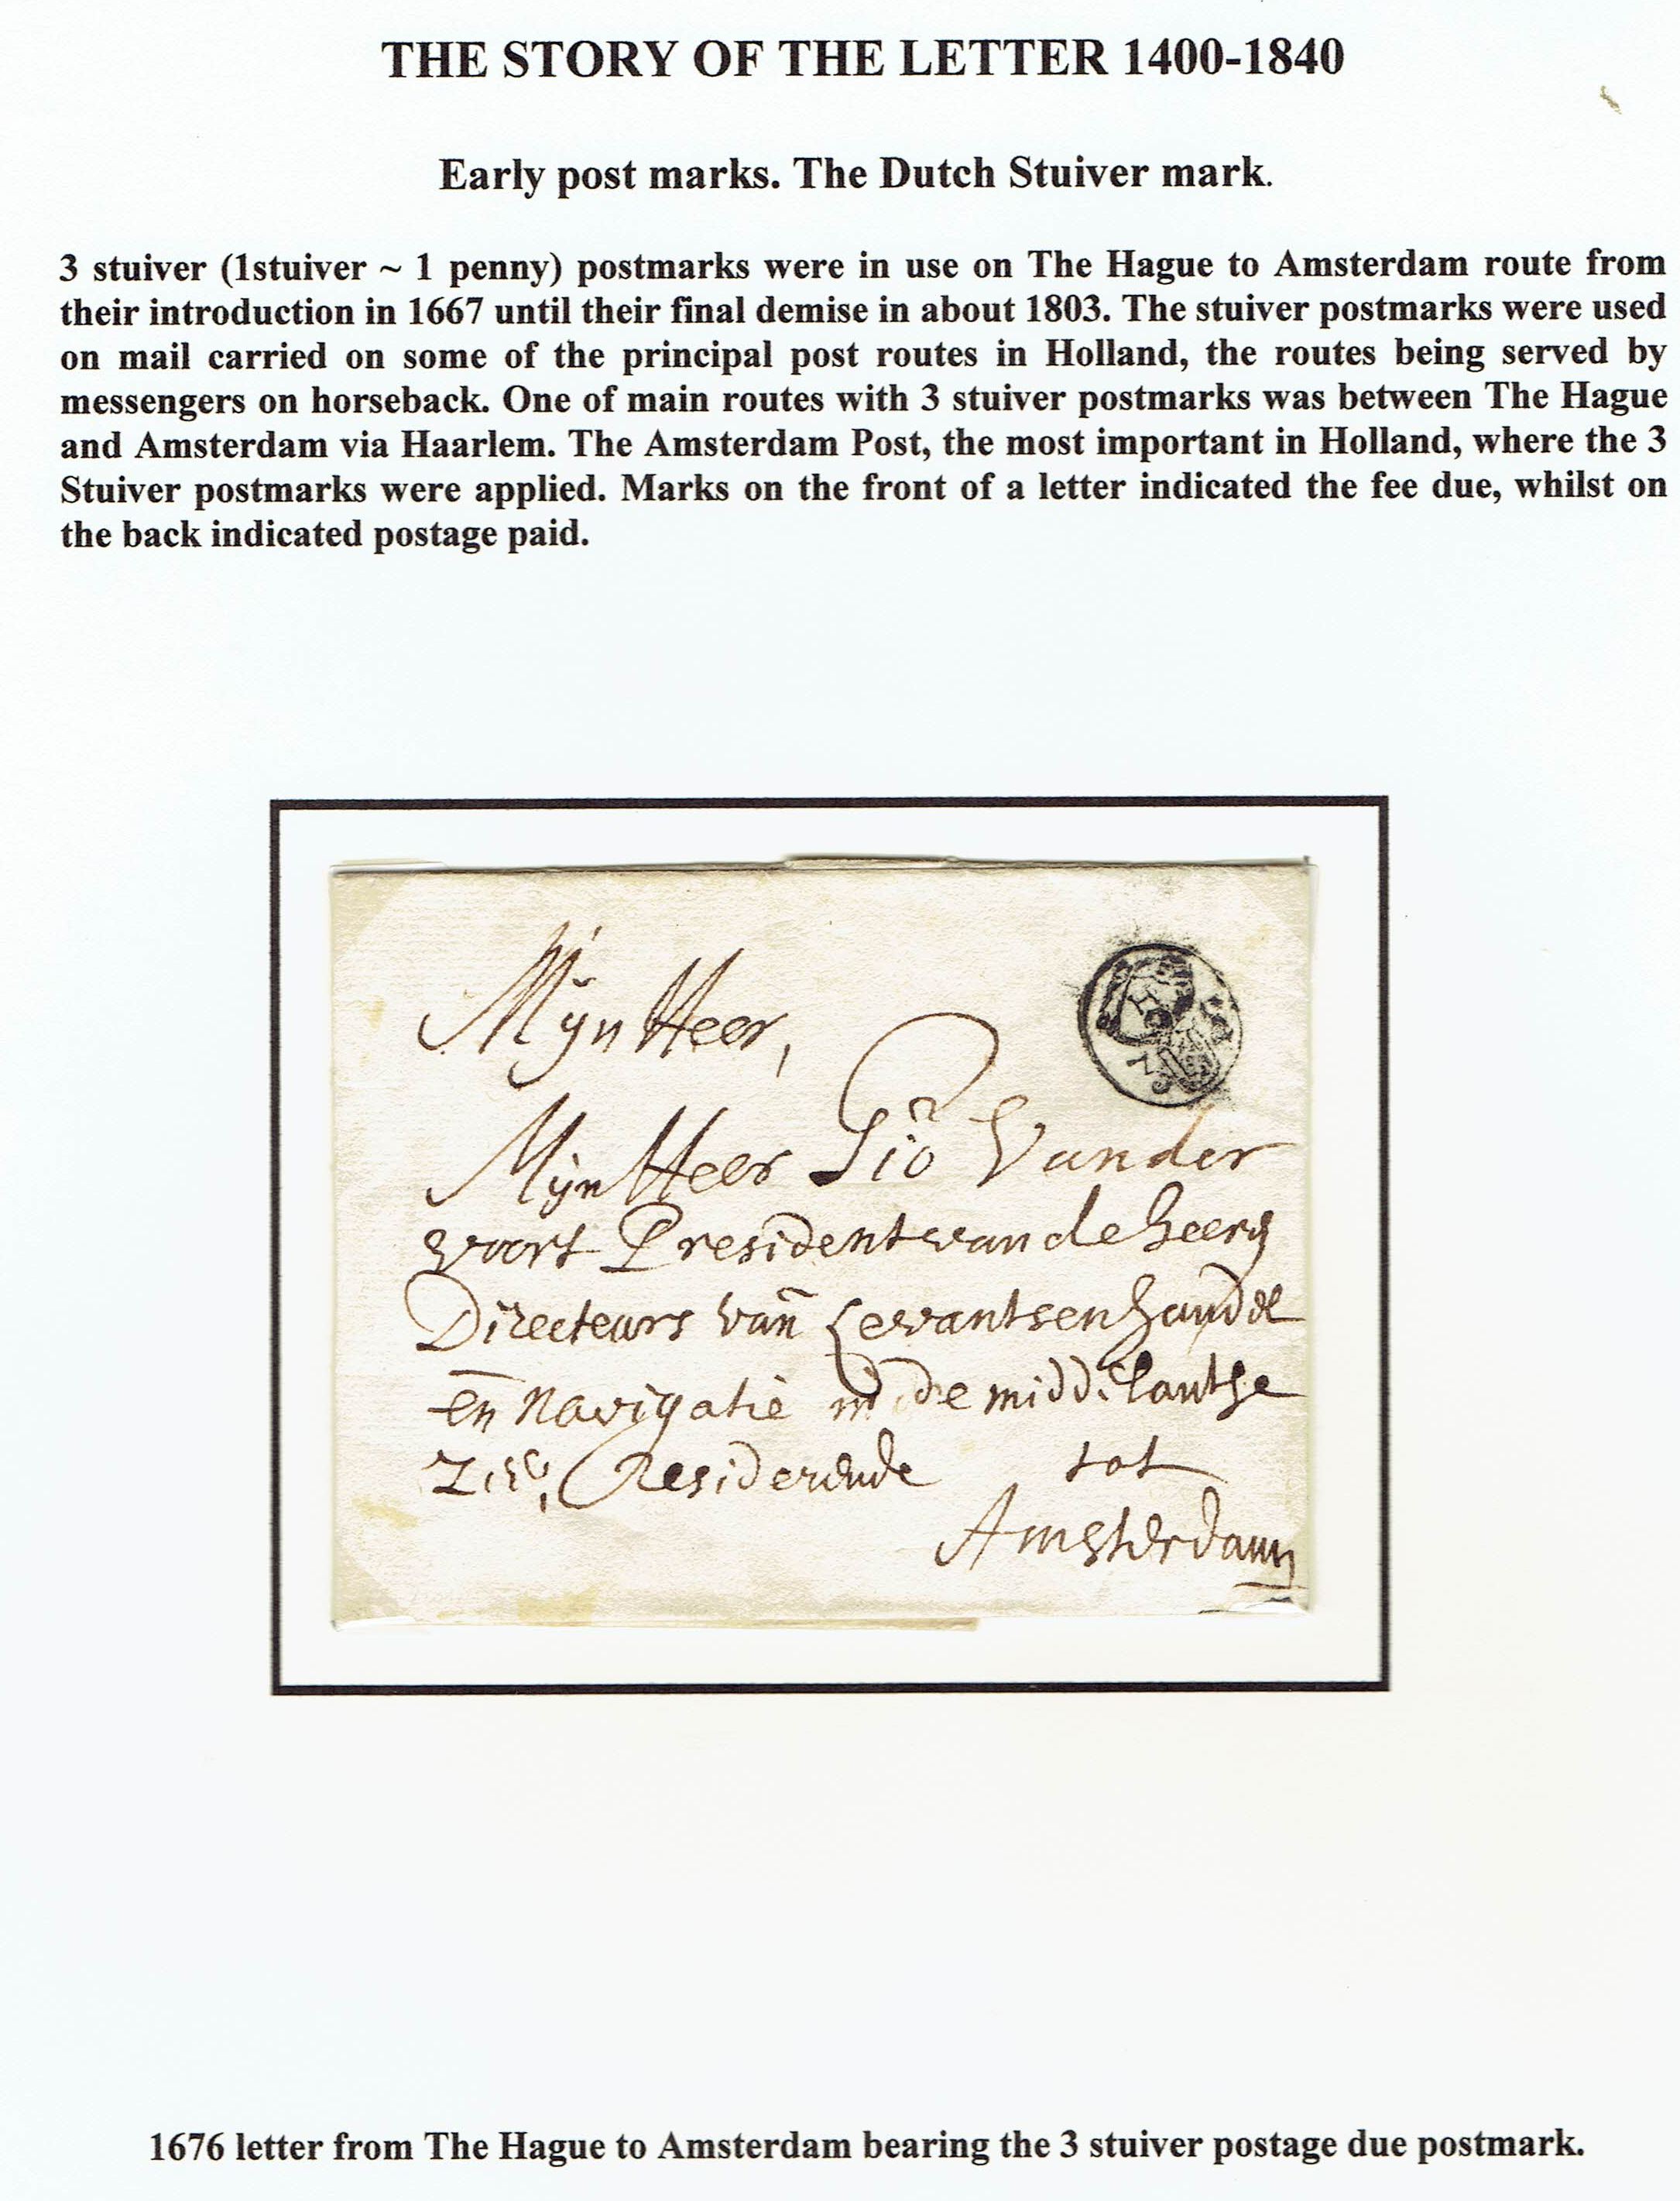 THE STORY OF THE LETTER 1400-1840
Early post marks. The Dutch Stuiver mark.
3 stuiver (1stuiver ~ 1 penny) postmarks were in use on The Hague to Amsterdam route from
their introduction in 1667 until their final demise in about 1803. The stuiver postmarks were used
on mail carried on some of the principal post routes in Holland, the routes being served by
messengers on horseback. One of main routes with 3 stuiver postmarks was between The Hague
and Amsterdam via Haarlem. The Amsterdam Post, the most important in Holland, where the 3
Stuiver postmarks were applied. Marks on the front of a letter indicated the fee due, whilst on
the back indicated postage paid.
Mijn Heer,
Mijn Heer Gio Vander
voort President van de heeren
Directeurs van Levantsen handel
en Navigatie in de midd: lantse
Zee, Residerende tot
Amsterdam
1676 letter from The Hague to Amsterdam bearing the 3 stuiver postage due postmark.